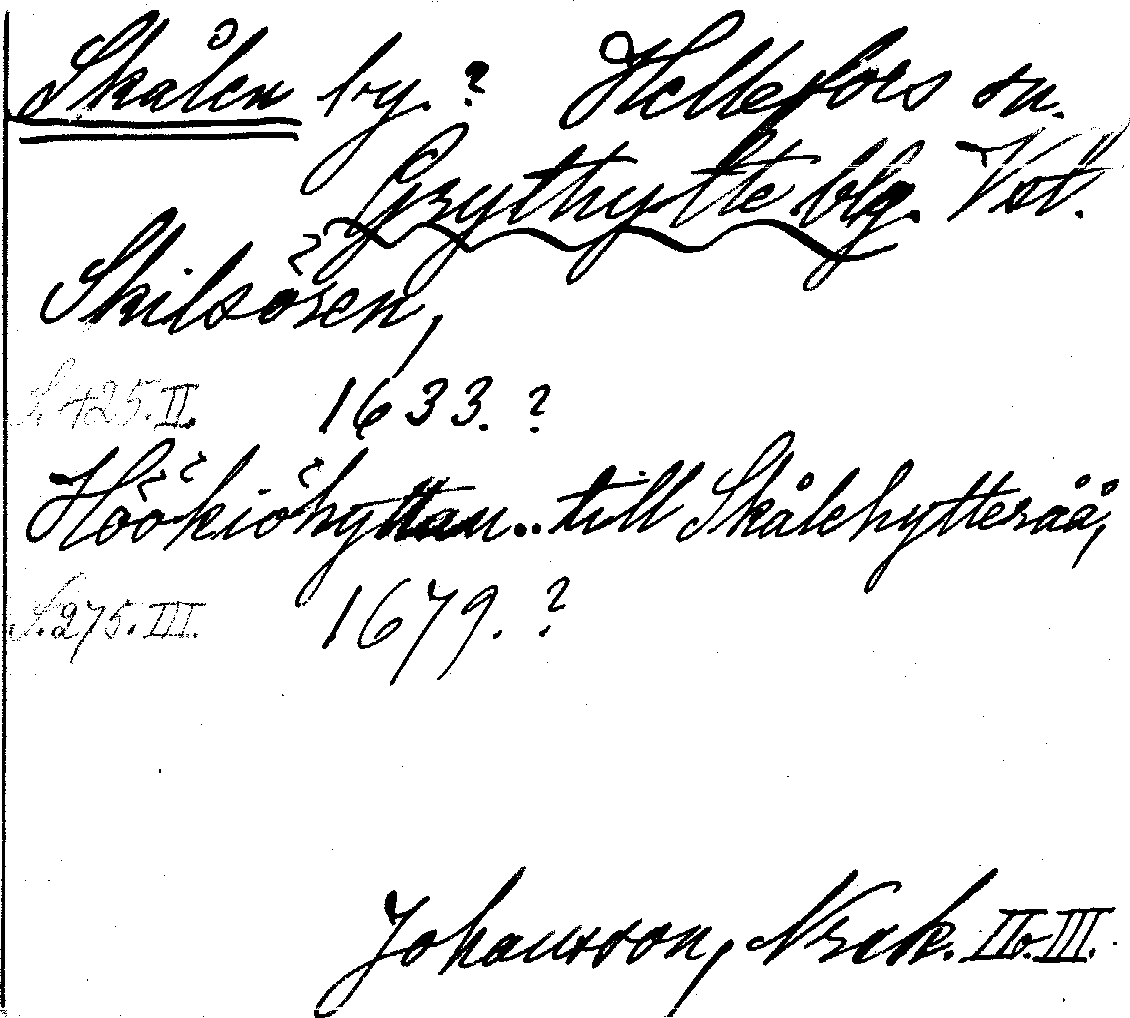 Skålen by. ? Hellefors sn.
Grythytte blg. Vstml.
Skilsören,
S. 425. II. 1633. ?
Höökiöhyttan .. till Skålehytteråå,
S. 275. III. 1679. ?
Johansson, Nrek. II o. III.